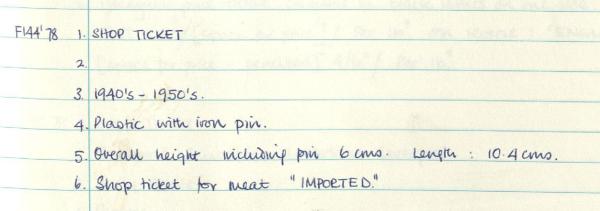 F144'78 1. SHOP TICKET
2.
3. 1940's - 1950's.
4. Plastic with iron pin.
5. Overall height including pin 6 cms. Length : 10.4 cms.
6. Shop ticket for meat "IMPORTED."